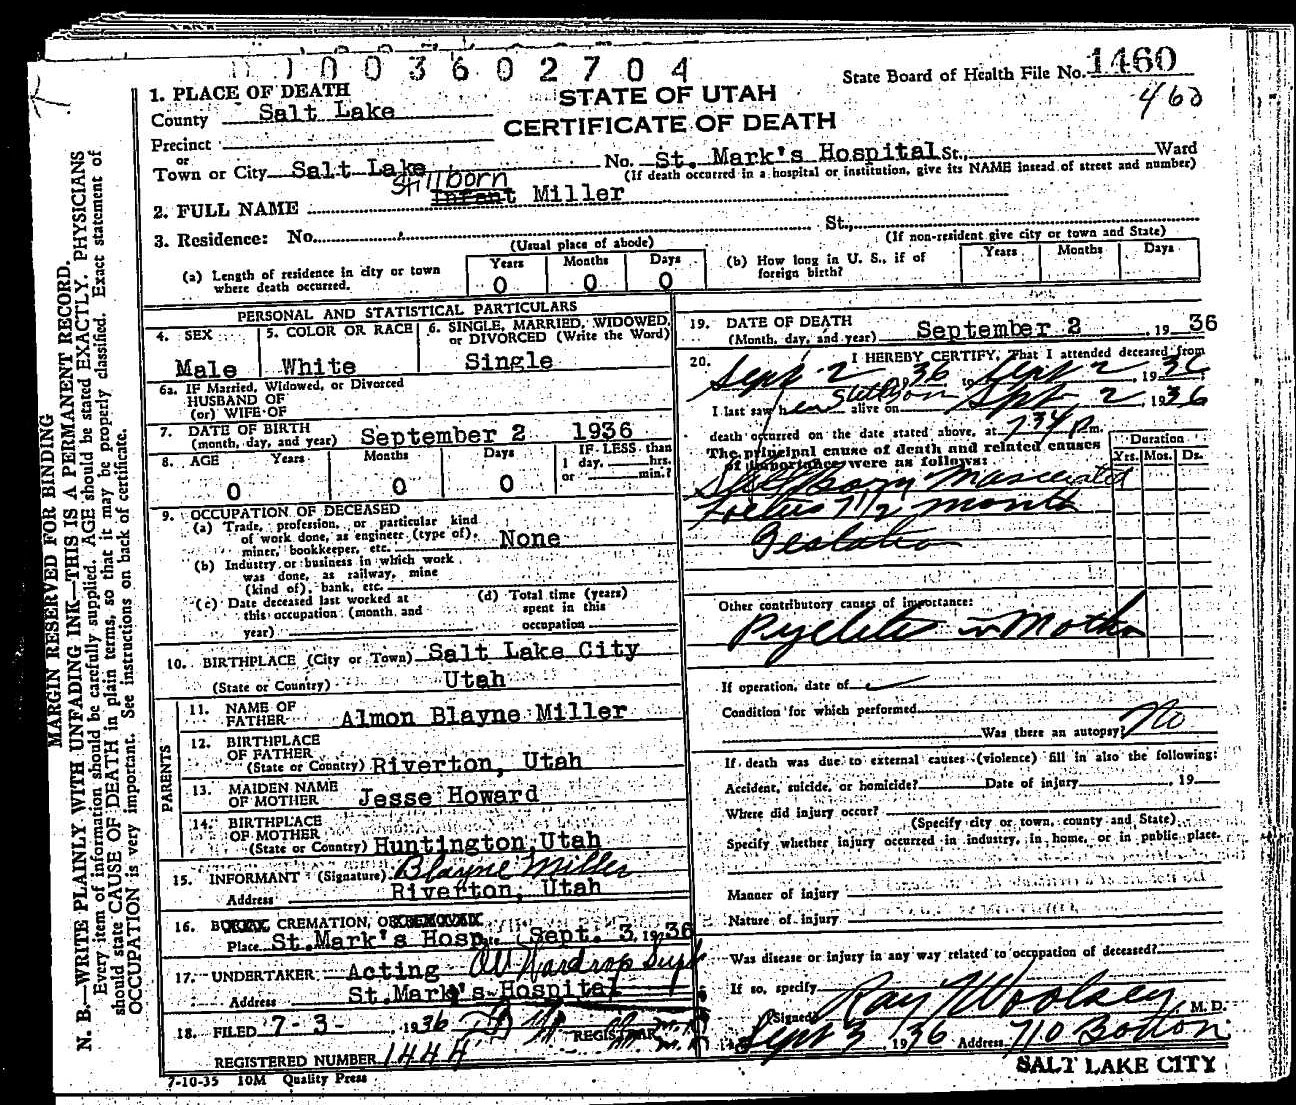 1003602704
State Board of Health File No. 1460
460
1. PLACE OF DEATH
STATE OF UTAH
County Salt Lake
CERTIFICATE OF DEATH
Precinct
or
Town or City Salt Lake No. St. Mark's Hospital St., Ward
(If death occurred in a hospital or institution, give its NAME instead of street and number)
Stillborn
2. FULL NAME Infant Miller
3. Residence: No. St.,
(Usual place of abode) (If non-resident give city or town and State)
(a) Length of residence in city or town where death occurred. Years 0 Months 0 Days 0
(b) How long in U. S., if of foreign birth? Years Months Days
PERSONAL AND STATISTICAL PARTICULARS
4. SEX Male
5. COLOR OR RACE White
6. SINGLE, MARRIED, WIDOWED, or DIVORCED (Write the Word) Single
6a. IF Married, Widowed, or Divorced
HUSBAND OF
(or) WIFE OF
7. DATE OF BIRTH
(month, day, and year) September 2 1936
8. AGE Years 0 Months 0 Days 0
IF LESS than
1 day, hrs.
or min.?
9. OCCUPATION OF DECEASED
(a) Trade, profession, or particular kind
of work done, as engineer (type of),
miner, bookkeeper, etc. None
(b) Industry or business in which work
was done, as railway, mine
(kind of), bank, etc.
(c) Date deceased last worked at
this occupation (month, and
year)
(d) Total time (years)
spent in this
occupation
10. BIRTHPLACE (City or Town) Salt Lake City
(State or Country) Utah
PARENTS
11. NAME OF
FATHER Almon Blayne Miller
12. BIRTHPLACE
OF FATHER
(State or Country) Riverton, Utah
13. MAIDEN NAME
OF MOTHER Jesse Howard
14. BIRTHPLACE
OF MOTHER
(State or Country) Huntington, Utah
15. INFORMANT (Signature) Blayne Miller
Address Riverton, Utah
16. CREMATION,
Place St.Mark's Hosp. Sept. 3, 1936
17. UNDERTAKER Acting Wardrop Supt
Address St.Mark's Hospital
18. FILED 7-3- 1936 REGISTRAR
REGISTERED NUMBER 1444
7-10-35 10M Quality Press
19. DATE OF DEATH
(Month, day, and year) September 2 1936
20. I HEREBY CERTIFY, That I attended deceased from
Sept 2 1936 to Sept 2, 1936
I last saw h alive on Stillborn Sept 2 1936
death occurred on the date stated above, at 7:34 P m.
The principal cause of death and related causes
of importance were as follows:
Duration
Yrs. Mos. Ds.
Stillborn Mascerated
Foetus 7 1/2 month
Gestation
Other contributory causes of importance:
Pyelitis in Mother
If operation, date of
Condition for which performed
Was there an autopsy? No
If death was due to external causes (violence) fill in also the following:
Accident, suicide, or homicide? Date of injury , 19
Where did injury occur?
(Specify city or town, county and State)
Specify whether injury occurred in industry, in home, or in public place.
Manner of injury
Nature of injury
Was disease or injury in any way related to occupation of deceased?
If so, specify
(Signed) Ray Woolsey, M. D.
Sept 3 1936 Address 710 Boston
SALT LAKE CITY
MARGIN RESERVED FOR BINDING
N. B.—WRITE PLAINLY WITH UNFADING INK—THIS IS A PERMANENT RECORD.
Every item of information should be carefully supplied. AGE should be stated EXACTLY. PHYSICIANS
should state CAUSE OF DEATH in plain terms, so that it may be properly classified. Exact statement of
OCCUPATION is very important. See instructions on back of certificate.